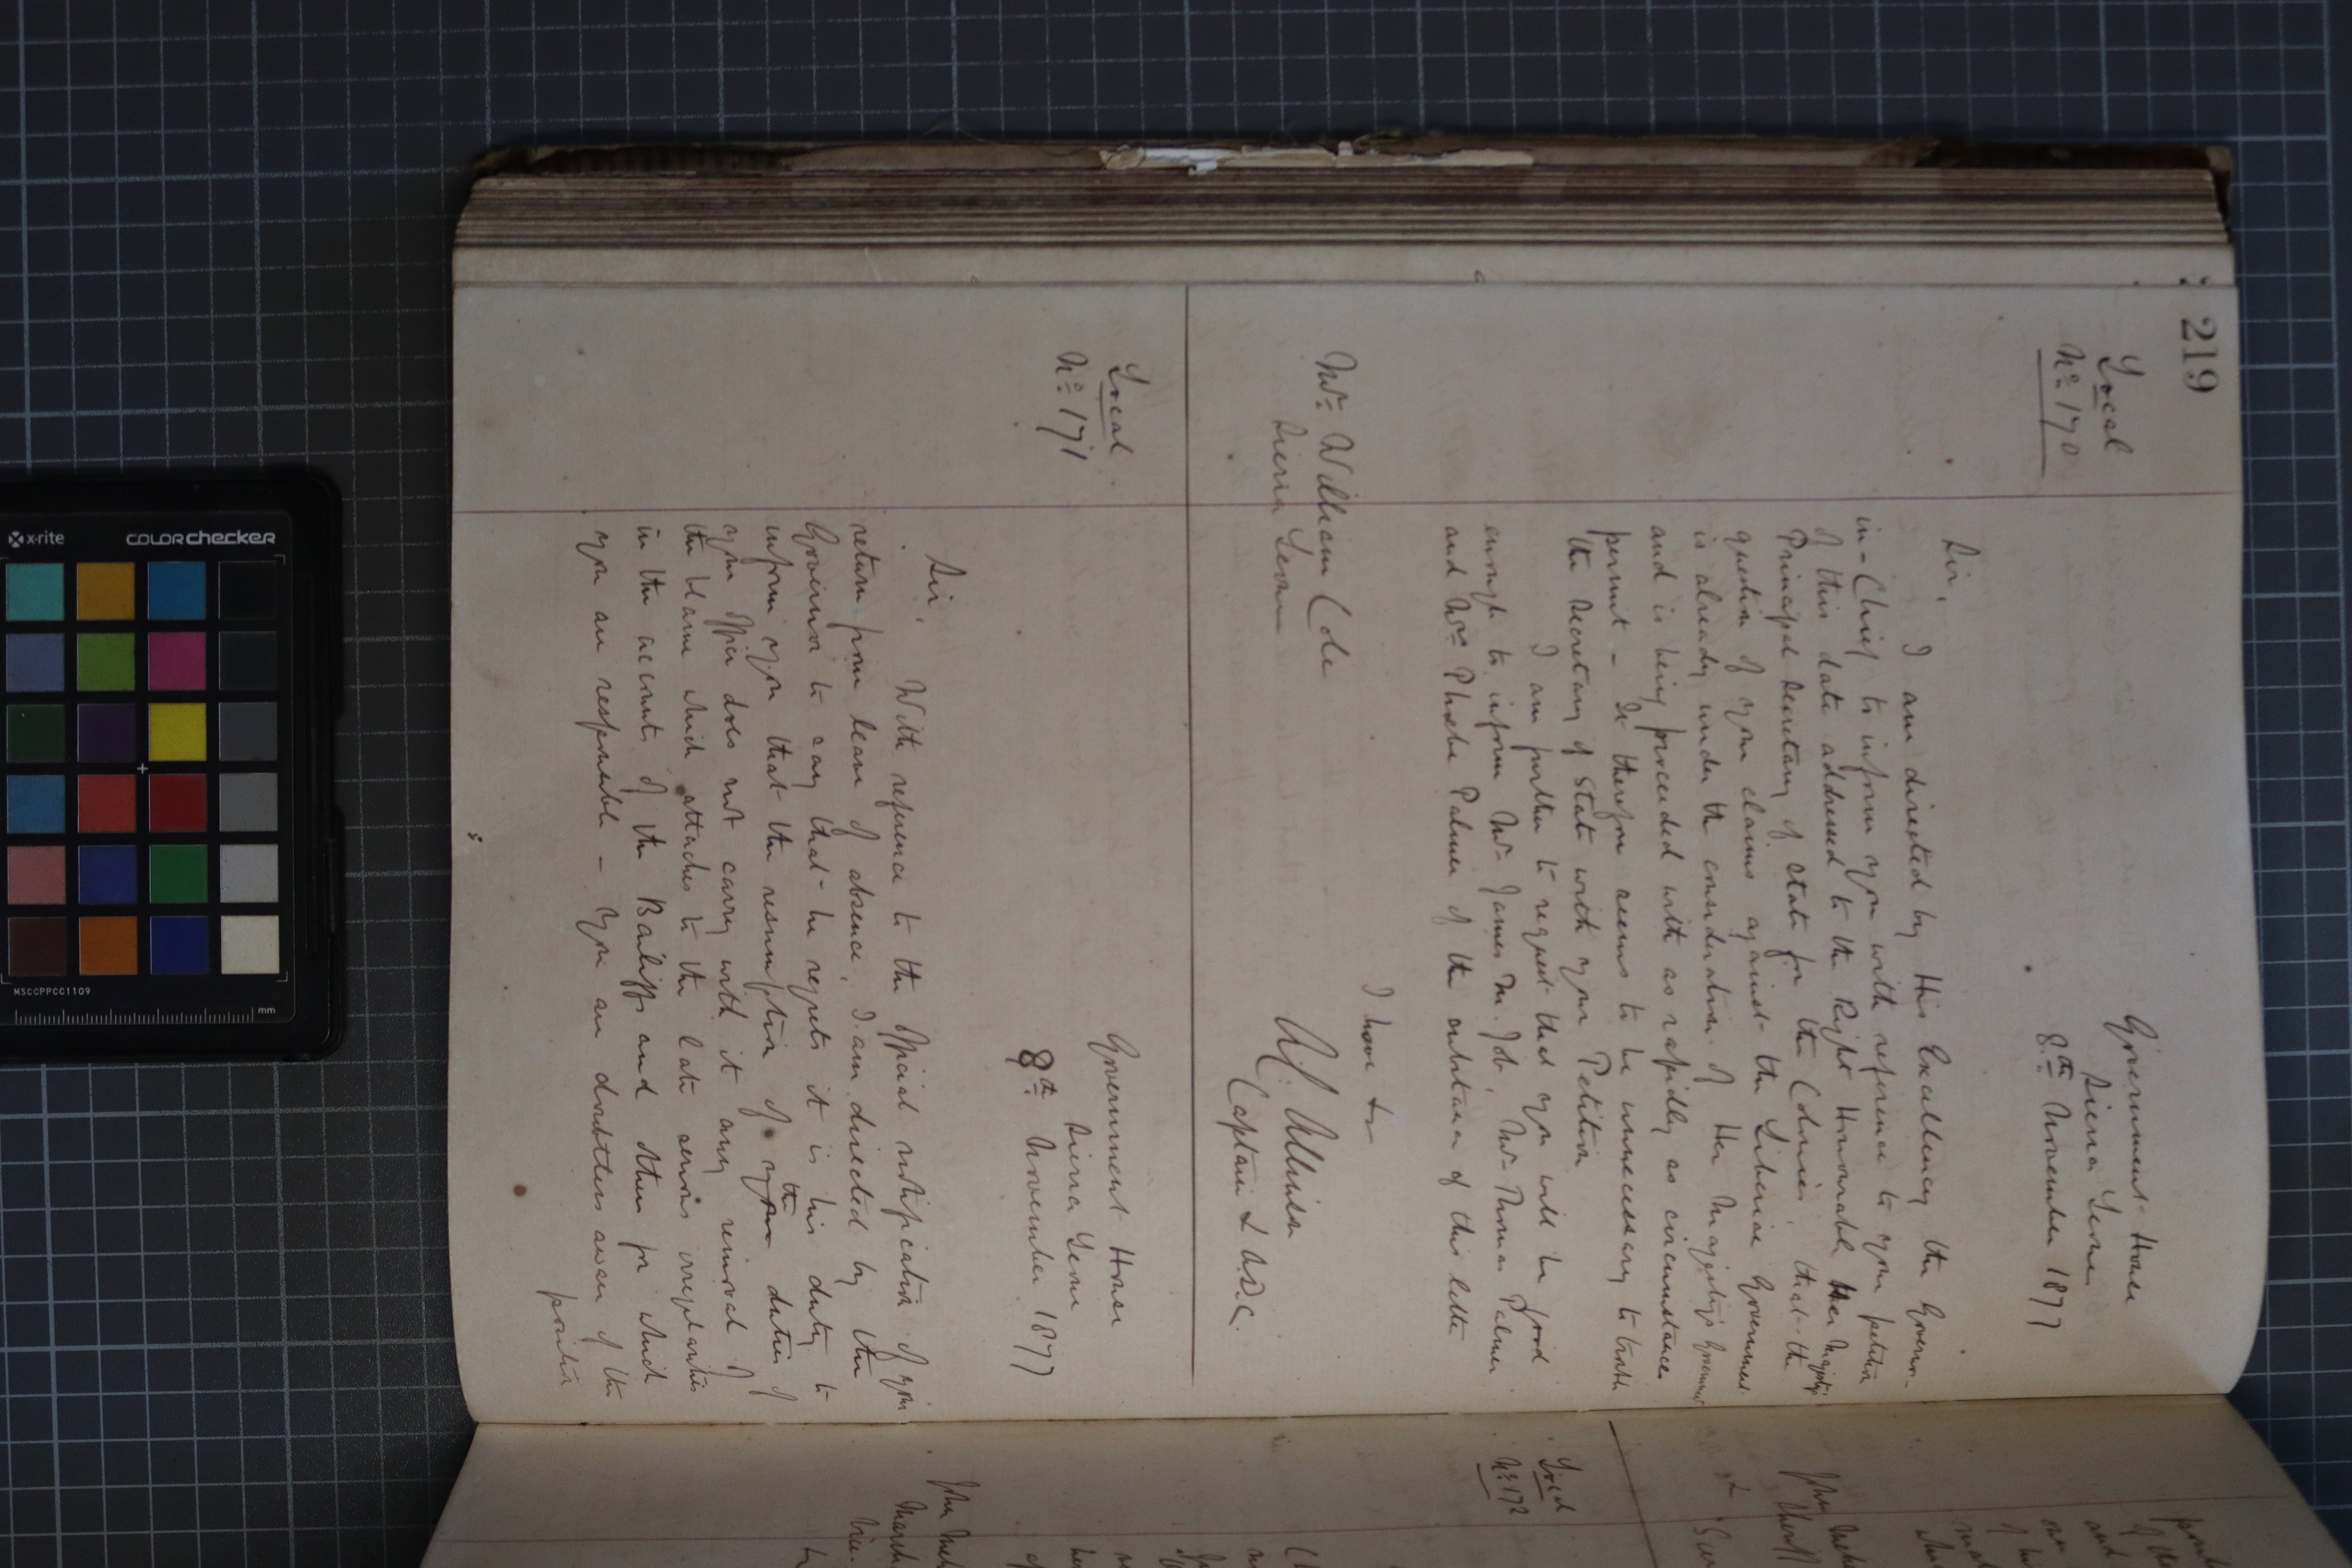 219
Local
No. 170
Government House
Sierra Leone
8th November 1877
Sir,
I am directed by His Excellency the Governor-
in-Chief to inform you with reference to your petition
of this date addressed to the Right Honourable Her Majesty's
Principal Secretary of State for the Colonies, that the
question of your claims against the Liberian Government
is already under the consideration of Her Majesty's Government
and is being proceeded with as rapidly as circumstances
permit - It therefore seems to be unnecessary to trouble
the Secretary of State with your Petition
I am further to request that you will be good
enough to inform Mr. James M. Job, Mr. Thomas Palmer
and Mrs. Phoebe Palmer of the substance of this letter
I have &c
Captain & A.D.C.
Mr. William Cole
Sierra Leone
Local
No. 171
Government House
Sierra Leone
8th November 1877
Sir,
With reference to the official notification of your
return from leave of absence, I am directed by the
Governor to say that he regrets it is his duty to
inform you that the resumption of your the duties of
your office does not carry with it any removal of
the blame which attaches to the late serious irregularities
in the accounts of the Bailiffs and others for which
you are responsible - You are doubtless aware of the
position
Local
No. 172
John
Sheriff
John